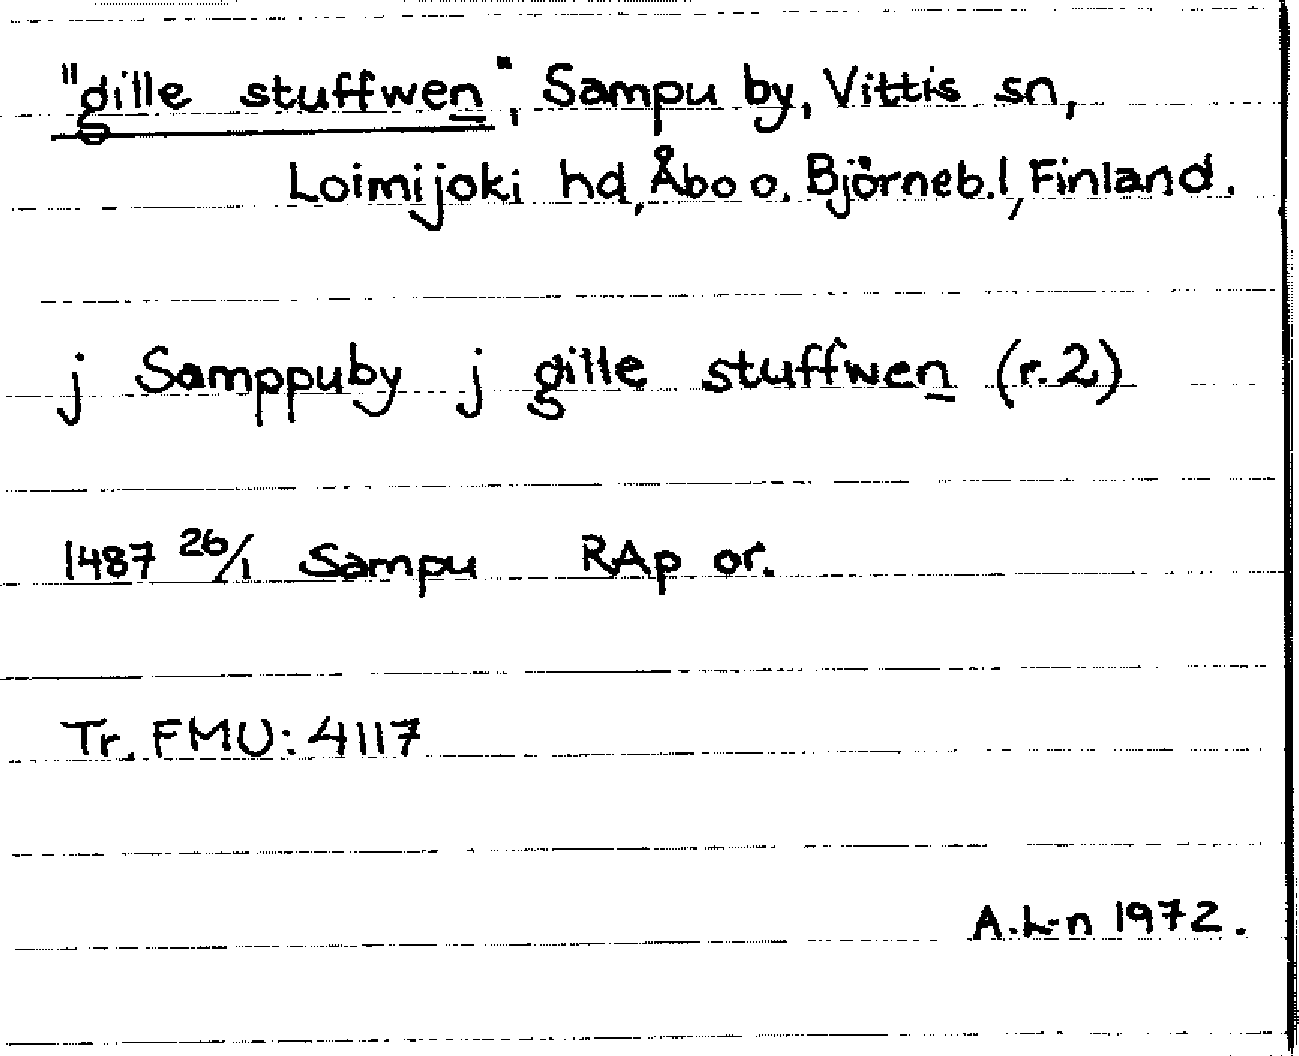 "gille stuffwen", Sampu by, Vittis sn,
Loimijoki hd, Åbo o. Björneb.l, Finland.
j Samppuby j gille stuffwen (r.2)
1487 26/1 Sampu RAp or.
Tr. FMU: 4117
A.L-n 1972.